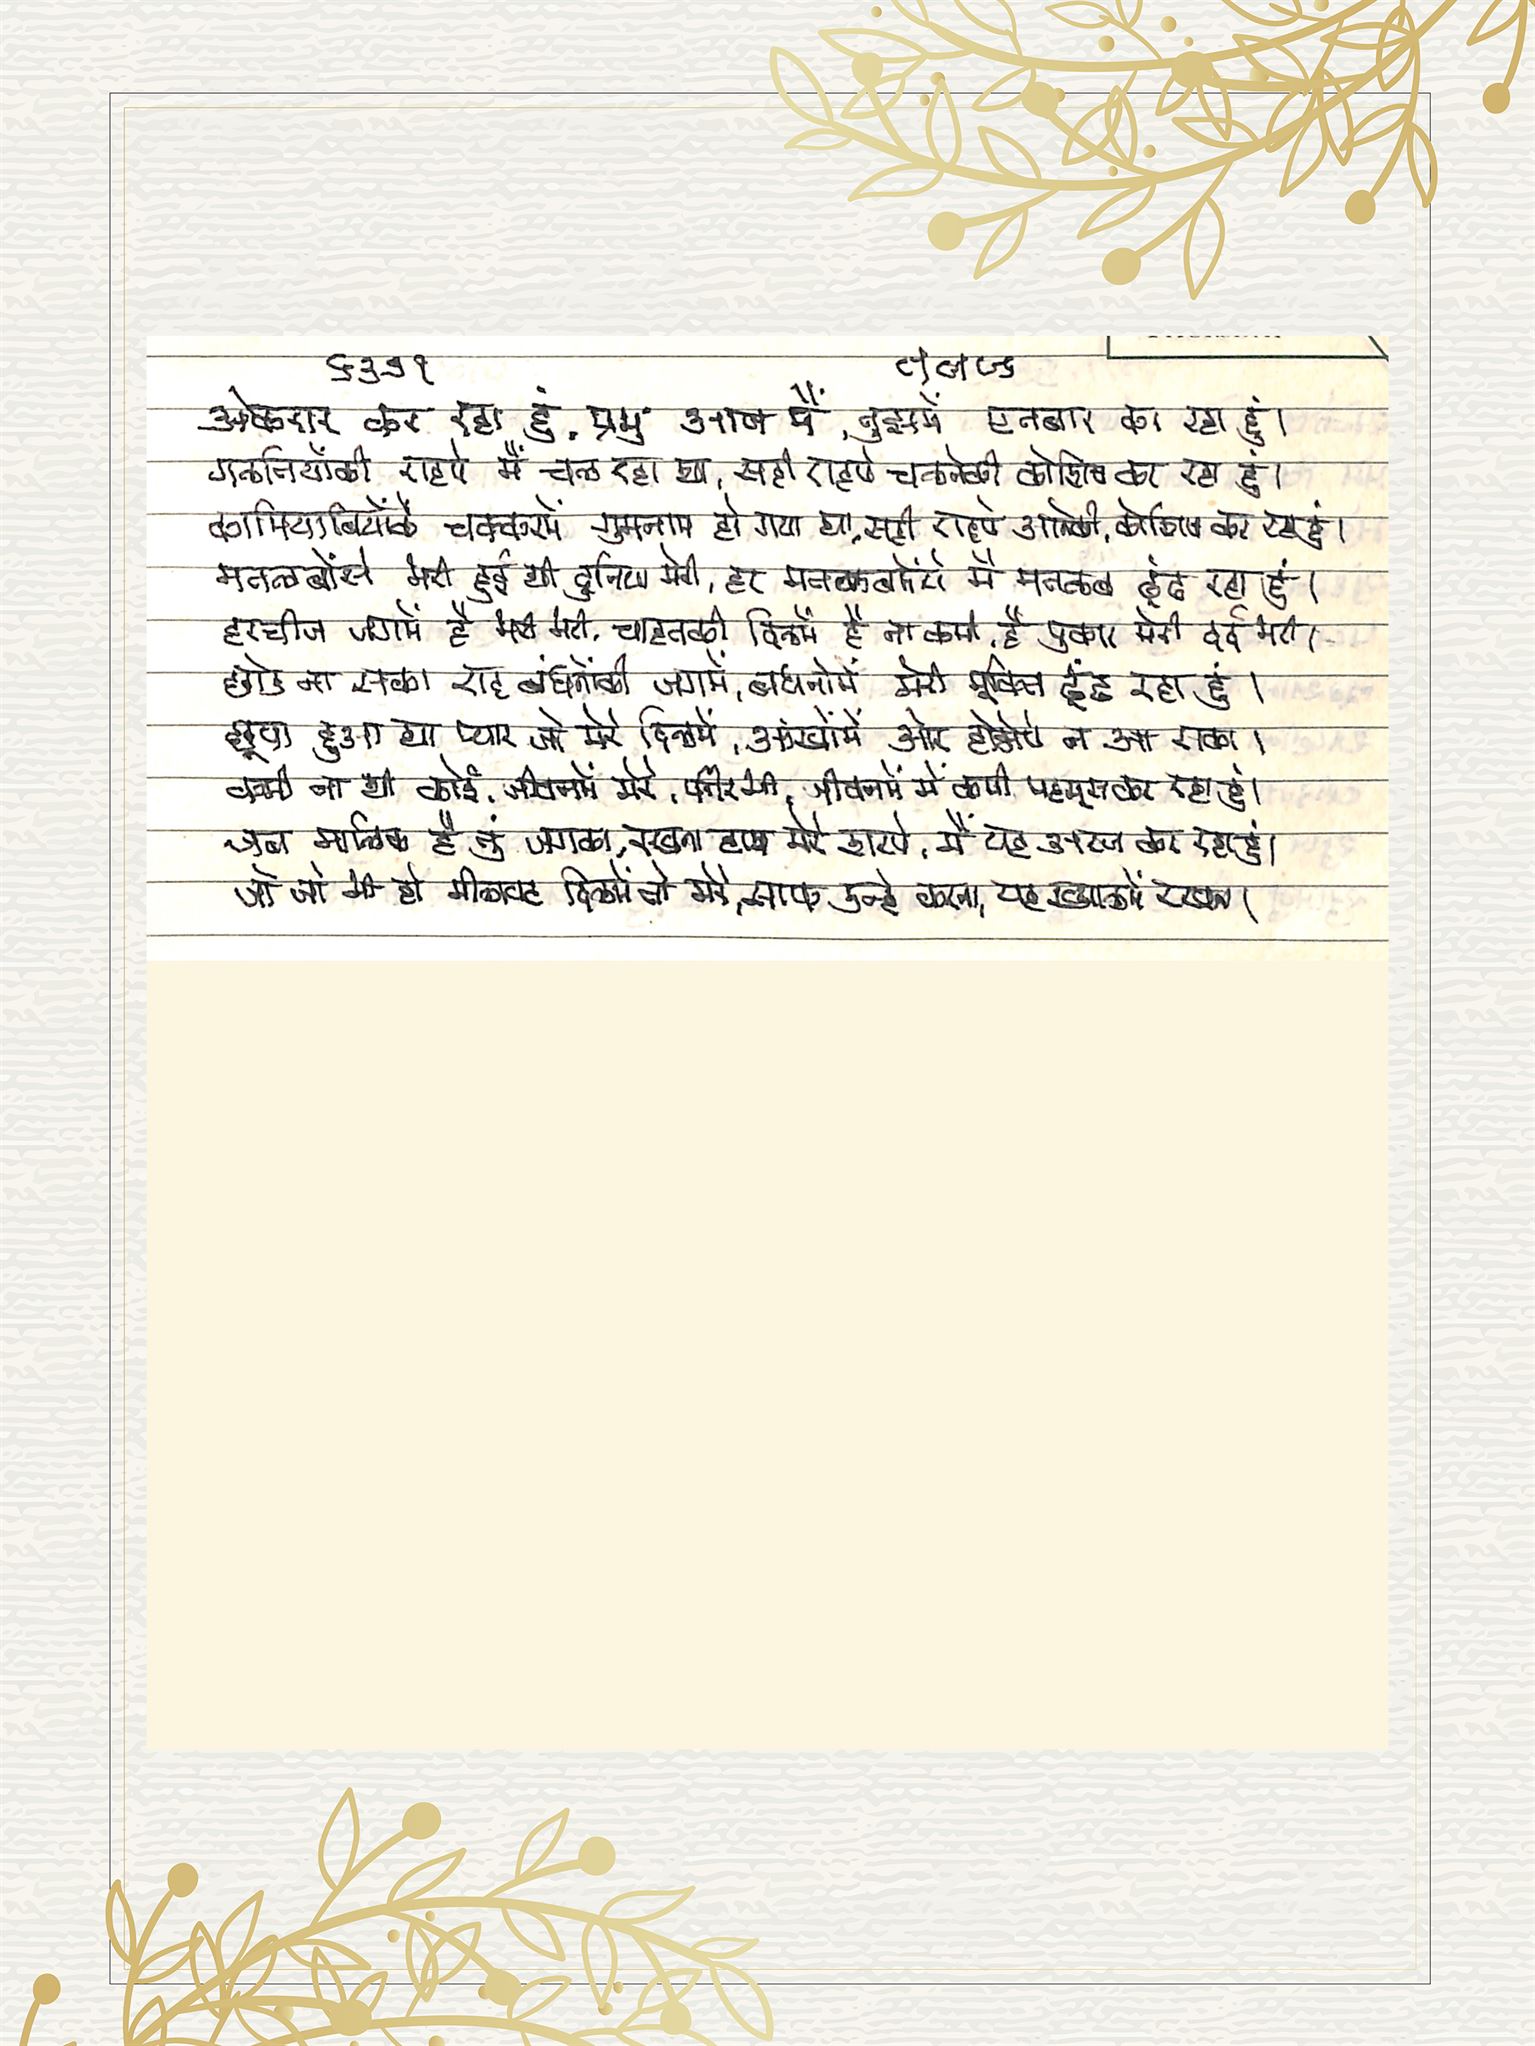 अेकरार कर रहा हुं, प्रभु आज मैं, तुझमें एतबार कर रहा हुं।
गलतियोंकी राहपे मैं चल रहा था, सही राहपे चलनेकी कोशिष कर रहा हुं।
कामियाबियोंके चक्करमें गुमनाम हो गया था, सही राहपे आनेकी, कोशिष कर रहा हुं।
मतलबोंसे भरी हुई थी दुनिया मेरी, हर मतलबोंसे मैं मतलब ढूंढ रहा हुं।
हरचीज जगमें है भरी भरी, चाहतकी दिलमें है ना कमी, है पुकार मेरी दर्द भरी।
छोड ना सका राह बंधनोंकी जगमें, बंधनोमें मेरी मूक्ति ढूंढ रहा हुं।
छूपा हुआ था प्यार जो मेरे दिलमें, आंखोंमें ओर होठोपे न आ सका।
कमी ना थी कोई, जीवनमें मेरे, फिरभी, जीवनमें में कमी महसूस कर रहा हुं।
जब मालिक है तुं जगका, रखना हाथ मेरे शिरपे, मैं यह अरज कर रहा हुं।
जो जो भी हो मीलावट दिलमें तो मेरे, साफ उन्हे करना, यह ख्यालमें रखना।